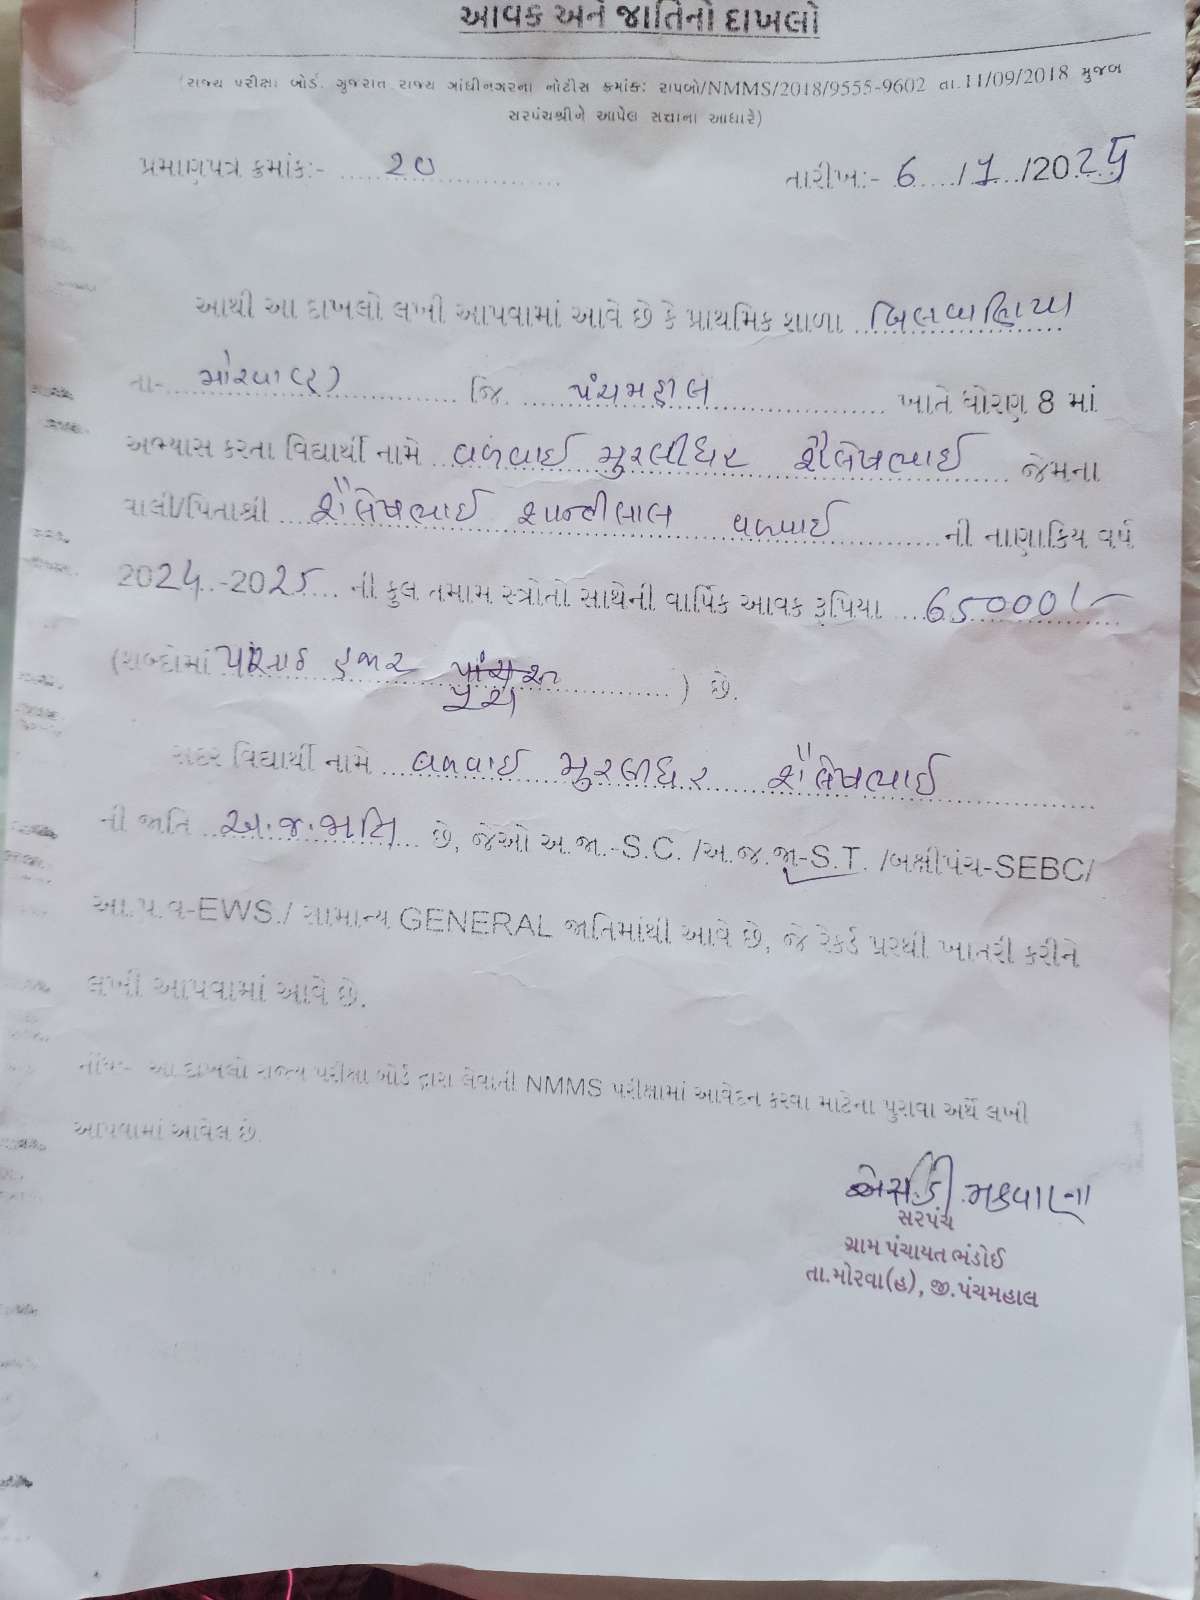 આવક અને જાતિનો દાખલો
(રાજ્ય પરીક્ષા બોર્ડ, ગુજરાત રાજ્ય ગાંધીનગરના નોટીસ ક્રમાંક: રાપબો/NMMS/2018/9555-9602 તા.11/09/2018 મુજબ
સરપંચશ્રીને આપેલ સત્તાના આધારે)
પ્રમાણપત્ર ક્રમાંક:- 20 તારીખ:- 6/1/2025
આથી આ દાખલો લખી આપવામાં આવે છે કે પ્રાથમિક શાળા
તા- મોરવા(હ) જિ. પંચમહાલ ખાતે ધોરણ 8 માં
અભ્યાસ કરતા વિદ્યાર્થી નામે વળવાઈ મુરલીધર શૈલેષભાઈ જેમના
વાલી/પિતાશ્રી શૈલેષભાઈ શાન્તીલાલ વળવાઈ ની નાણાકિય વર્ષ
2024-2025 ની કુલ તમામ સ્ત્રોતો સાથેની વાર્ષિક આવક રૂપિયા 65000/-
(શબ્દોમાં હજાર પુરા ) છે.
સદર વિદ્યાર્થી નામે વળવાઈ મુરલીધર શૈલેષભાઈ
ની જાતિ અ.જ.જાતિ છે, જેઓ અ.જા.-S.C. /અ.જ.જા-S.T. /બક્ષીપંચ-SEBC/
આ.પ.વ-EWS./ સામાન્ય GENERAL જાતિમાંથી આવે છે, જે રેકર્ડ પરથી ખાતરી કરીને
લખી આપવામાં આવે છે.
નોંધ:- આ દાખલો રાજ્ય પરીક્ષા બોર્ડ દ્વારા લેવાતી NMMS પરીક્ષામાં આવેદન કરવા માટેના પુરાવા અર્થે લખી
આપવામાં આવેલ છે.
એસ.ડી.મકવાણા
સરપંચ
ગ્રામ પંચાયત ભંડોઈ
તા.મોરવા(હ), જી.પંચમહાલ